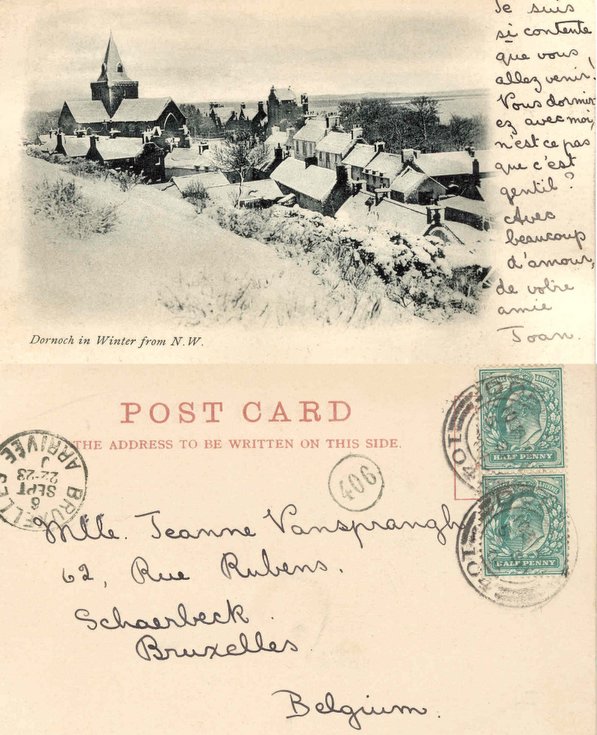 Je suis
si contente
que vous
allez venir!
Vous dormir
ez avec moi,
n'est ce pas
que c'est
gentil?
Avec
beaucoup
d'amour,
de votre
amie
Joan.
Dornoch in Winter from N.W.
POST CARD
THE ADDRESS TO BE WRITTEN ON THIS SIDE.
HALF PENNY
HALF PENNY
104
104
406
BRUXELLES
ARRIVEE
6
SEPT
22-23
Mlle. Jeanne Vanspranghe
62, Rue Rubens.
Schaerbeck.
Bruxelles.
Belgium.